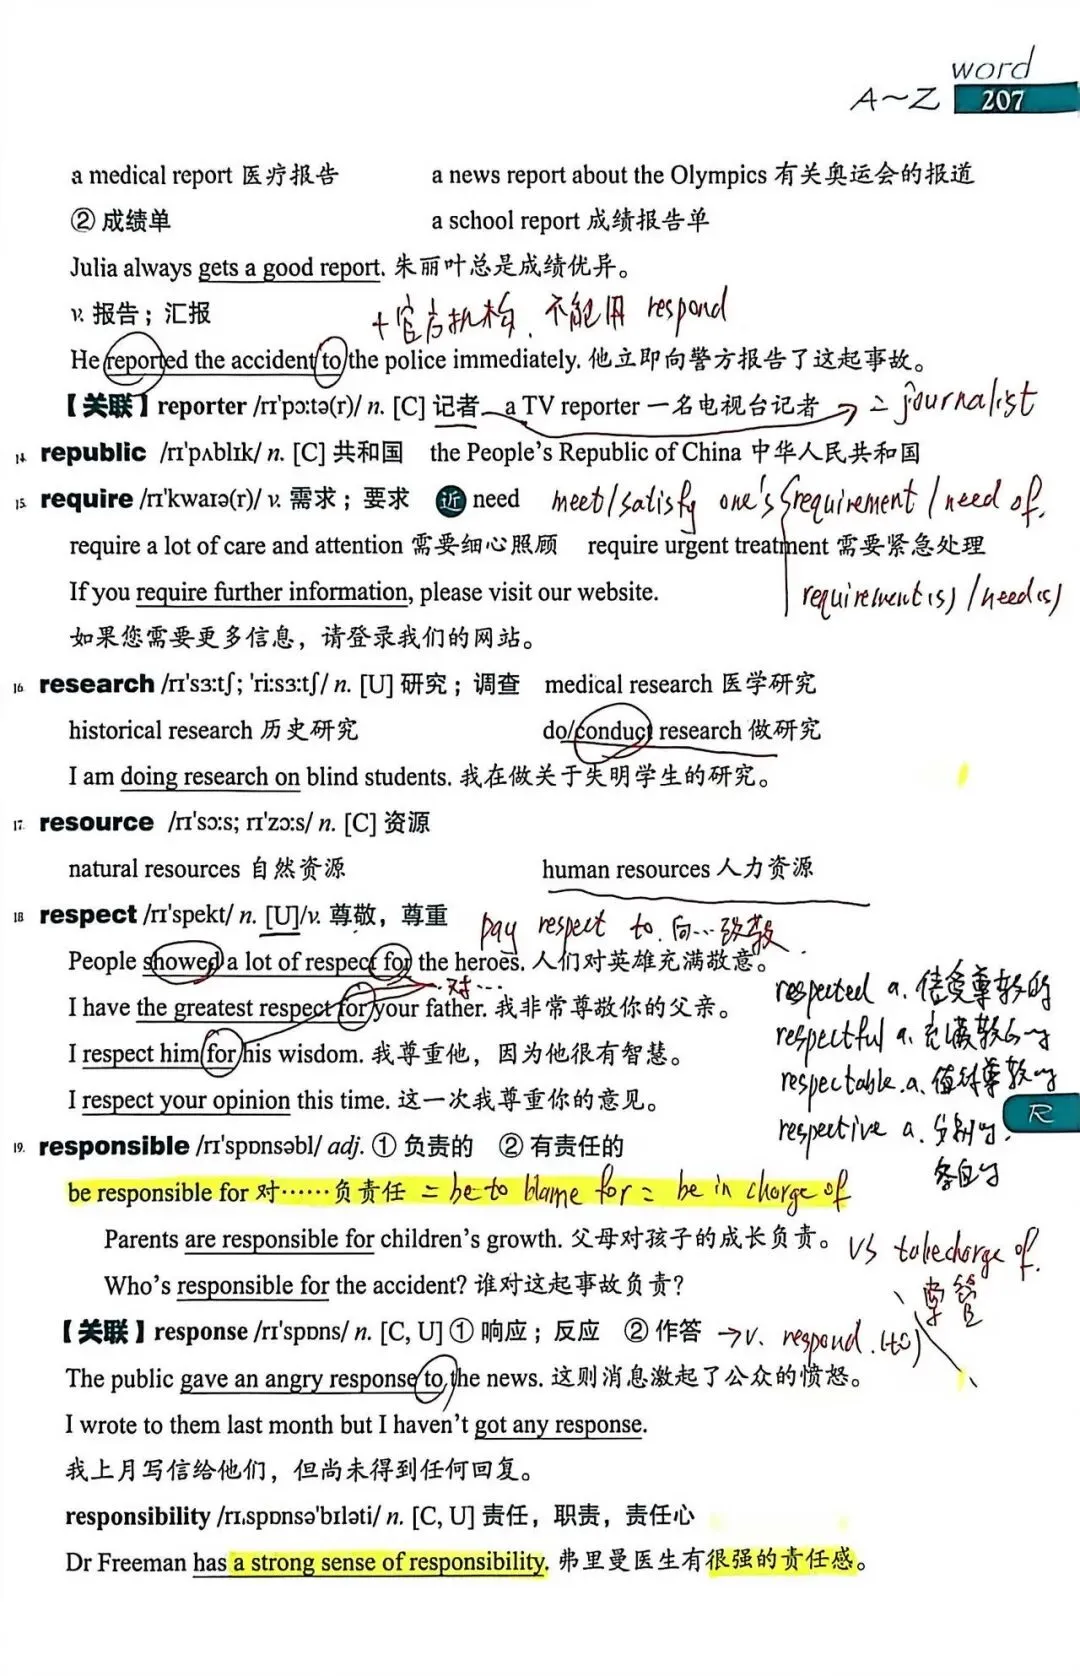 word
A~Z 207
a medical report 医疗报告 a news report about the Olympics 有关奥运会的报道
② 成绩单 a school report 成绩报告单
Julia always gets a good report. 朱丽叶总是成绩优异。
v. 报告；汇报
+官方机构. 不能用 respond
He reported the accident to the police immediately. 他立即向警方报告了这起事故。
【关联】reporter /rɪ'pɔ:tə(r)/ n. [C] 记者 a TV reporter 一名电视台记者 → = journalist
14. republic /rɪ'pʌblɪk/ n. [C] 共和国 the People's Republic of China 中华人民共和国
15. require /rɪ'kwaɪə(r)/ v. 需求；要求 近 need meet/satisfy one's requirement / need of.
require a lot of care and attention 需要细心照顾 require urgent treatment 需要紧急处理
If you require further information, please visit our website. requirement(s) / need(s)
如果您需要更多信息，请登录我们的网站。
16 research /rɪ'sɜ:tʃ; 'ri:sɜ:tʃ/ n. [U] 研究；调查 medical research 医学研究
historical research 历史研究 do/conduct research 做研究
I am doing research on blind students. 我在做关于失明学生的研究。
17. resource /rɪ'sɔ:s; rɪ'zɔ:s/ n. [C] 资源
natural resources 自然资源 human resources 人力资源
18 respect /rɪ'spekt/ n. [U]/v. 尊敬，尊重 pay respect to. 向…致敬
People showed a lot of respect for the heroes. 人们对英雄充满敬意。
对…
I have the greatest respect for your father. 我非常尊敬你的父亲。
respected a. 倍受尊敬的
respectful a. 充满敬意的
I respect him for his wisdom. 我尊重他，因为他很有智慧。
respectable. a. 值得尊敬的
I respect your opinion this time. 这一次我尊重你的意见。
R
respective a. 分别的.
各自的
19. responsible /rɪ'spɒnsəbl/ adj. ① 负责的 ② 有责任的
be responsible for 对……负责任 = be to blame for = be in charge of
Parents are responsible for children's growth. 父母对孩子的成长负责。 VS take charge of.
掌管
Who's responsible for the accident? 谁对这起事故负责？
【关联】response /rɪ'spɒns/ n. [C, U] ① 响应；反应 ② 作答 → v. respond. (to)
The public gave an angry response to the news. 这则消息激起了公众的愤怒。
I wrote to them last month but I haven't got any response.
我上月写信给他们，但尚未得到任何回复。
responsibility /rɪˌspɒnsə'bɪləti/ n. [C, U] 责任，职责，责任心
Dr Freeman has a strong sense of responsibility. 弗里曼医生有很强的责任感。